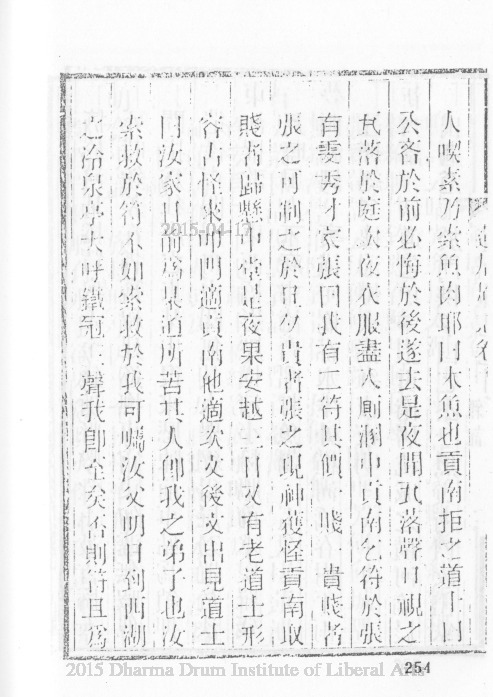 人喫素乃索魚肉耶曰木魚也貢南拒之道士曰
公吝於前必悔於後遂去是夜聞瓦落聲旦視之
瓦落於庭次夜衣服盡入廁溷中貢南乞符於張
有雯秀才家張曰我有二符其價一賤一貴賤者
張之可制之於旦夕貴者張之現神獲怪貢南取
賤者歸懸中堂是夜果安越三日又有老道士形
容古怪來叩門適貢南他適次文後文出見道士
曰汝家日前為某道所苦其人即我之弟子也汝
索救於符不如索救於我可囑汝父明日到西湖
之冷泉亭大呼鐵冠三聲我即至矣否則符且為
2015-04-17
254
2015 Dharma Drum Institute of Liberal Arts